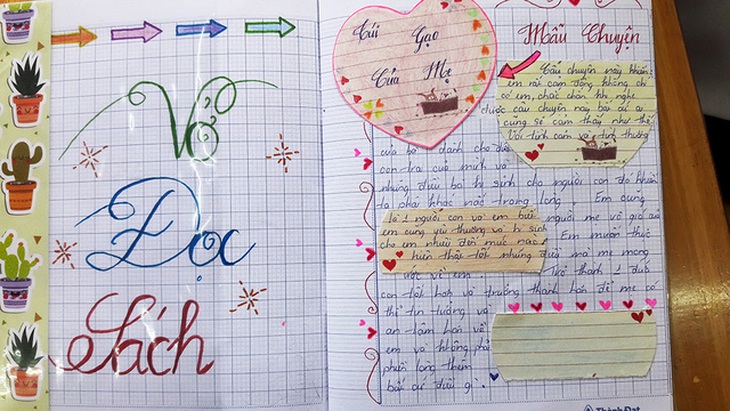 Vở
Đọc
Sách
Túi Gạo
Của Mẹ
Mẩu Chuyện
Câu chuyện này khiến
em rất cảm động không chỉ
có em, chắc chắn khi nghe
được câu chuyện này bất cứ ai
cũng sẽ cảm thấy như thế
Với tình cảm và tình thương
của bà dành cho đứa
con trai của mình và
những điều bà hi sinh cho người con đó khiến
ta phải khắc nấc trong lòng. Em cũng
là 1 người con và em biết người mẹ và gia
em cũng yêu thương và hi sinh
cho em nhiều đến mức nào. Em muốn thực
hiện thật tốt những điều mà mẹ mong
ước về em Trở thành 1 đứa
con tốt hơn và trưởng thành hơn để mẹ có
thể tin tưởng và
an tâm hơn về
em và không phải
phiền lòng thêm
bất cứ điều gì.
Thành Đạt